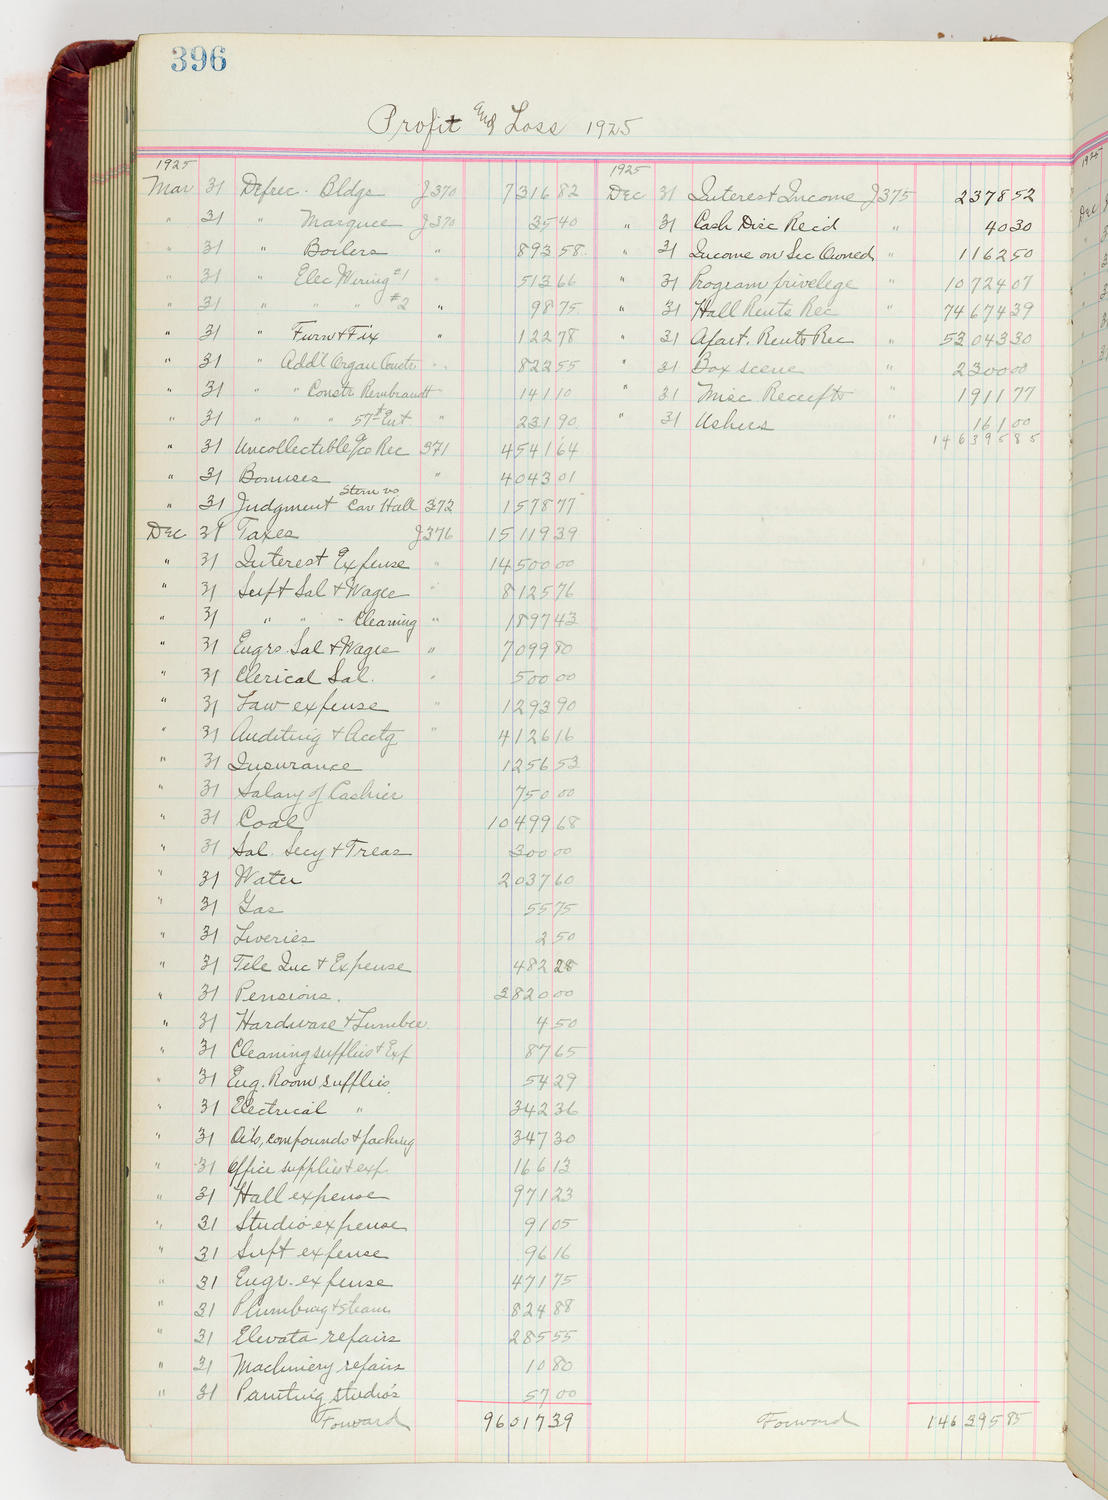 396
Profit and Loss 1925
1925
Mar 31 Deprec. Bldgs J370 7316 82
" 31 " Marquee J370 35 40
" 31 " Boilers " 893 58
" 31 " Elec Wiring #1 " 513 66
" 31 " " " #2 " 98 75
" 31 " Furn & Fix " 122 78
" 31 " Addl Organ Constr " 822 55
" 31 " " Constr Rembrandt 141 10
" 31 " " " 57th Ent " 231 90
" 31 Uncollectible a/cs Rec 371 4541 64
" 31 Bonuses " 4043 01
" 31 Judgment Stern vs Car Hall 372 1578 77
Dec 31 Taxes J376 15119 39
" 31 Interest Expense " 14500 00
" 31 Supt Sal & Wages " 8125 76
" 31 " " " Cleaning " 1897 43
" 31 Engrs Sal & Wages " 7099 80
" 31 Clerical Sal. " 500 00
" 31 Law expense " 1293 90
" 31 Auditing & Acctg " 4126 16
" 31 Insurance 1256 53
" 31 Salary of Cashier 750 00
" 31 Coal 10499 68
" 31 Sal. Secy & Treas 300 00
" 31 Water 2037 60
" 31 Gas 55 75
" 31 Liveries 2 50
" 31 Tele Inc & Expense 482 28
" 31 Pensions. 3820 00
" 31 Hardware & Lumber 4 50
" 31 Cleaning supplies & Exp 87 65
" 31 Eng. Room supplies 54 29
" 31 Electrical " 342 36
" 31 Oils, compounds & packing 347 30
" 31 Office supplies & exp. 166 13
" 31 Hall expense 971 23
" 31 Studio expense 91 05
" 31 Supt expense 96 16
" 31 Engr. expense 471 75
" 31 Plumbing & steam 824 88
" 31 Elevator repairs 285 55
" 31 Machinery repairs 10 80
" 31 Painting studio's 57 00
Forward 96017 39
1925
Dec 31 Interest Income J375 2378 52
" 31 Cash Disc Rec'd " 40 30
" 31 Income on Sec Owned " 1162 50
" 31 Program privelege " 10724 07
" 31 Hall Rents Rec " 74674 39
" 31 Apart. Rents Rec " 53043 30
" 31 Box scene " 2300 00
" 31 Misc Receipts " 1911 77
" 31 Ushers " 161 00
146395 85
Forward 146395 85
1925
Dec